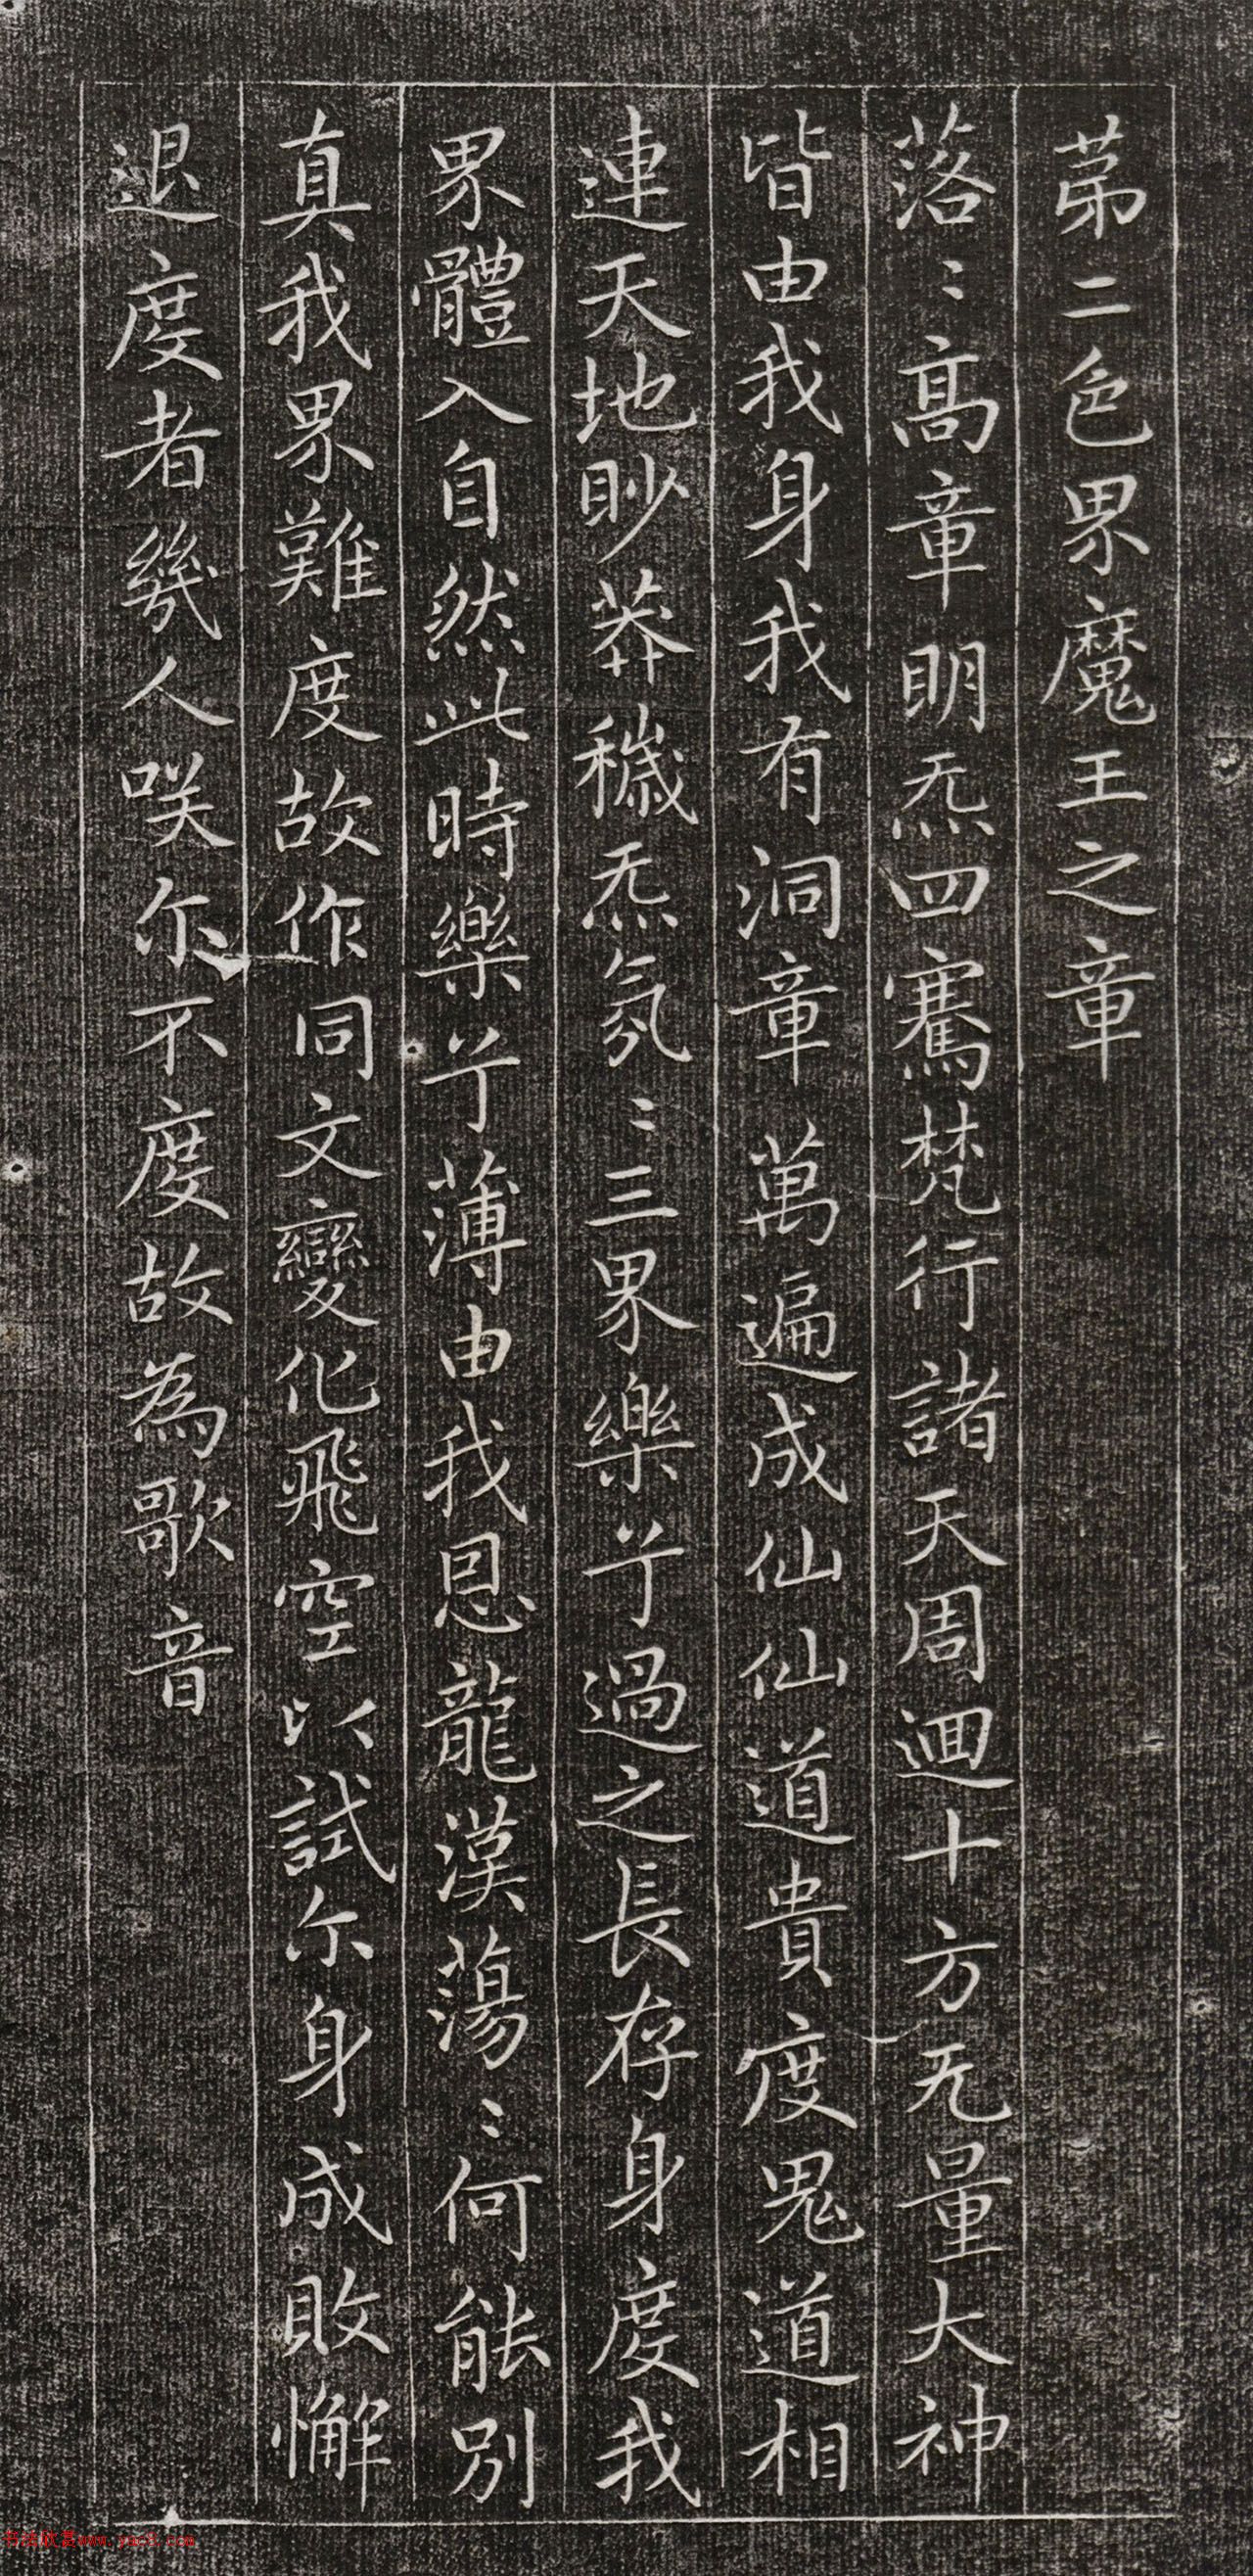 苐二色界魔王之章
落〻高章明炁四騫梵行諸天周迴十方无量大神
皆由我身我有洞章萬遍成仙仙道貴度鬼道相
連天地眇莽穢炁氛〻三界樂兮過之長存身度我
界體入自然此時樂兮薄由我恩龍漢蕩〻何能別
真我界難度故作同文變化飛空以試尔身成敗懈
退度者幾人咲尔不度故為歌音
www.yac8.com